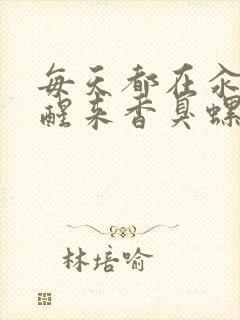 每天都在汆
醒来香臭螺
林培喻